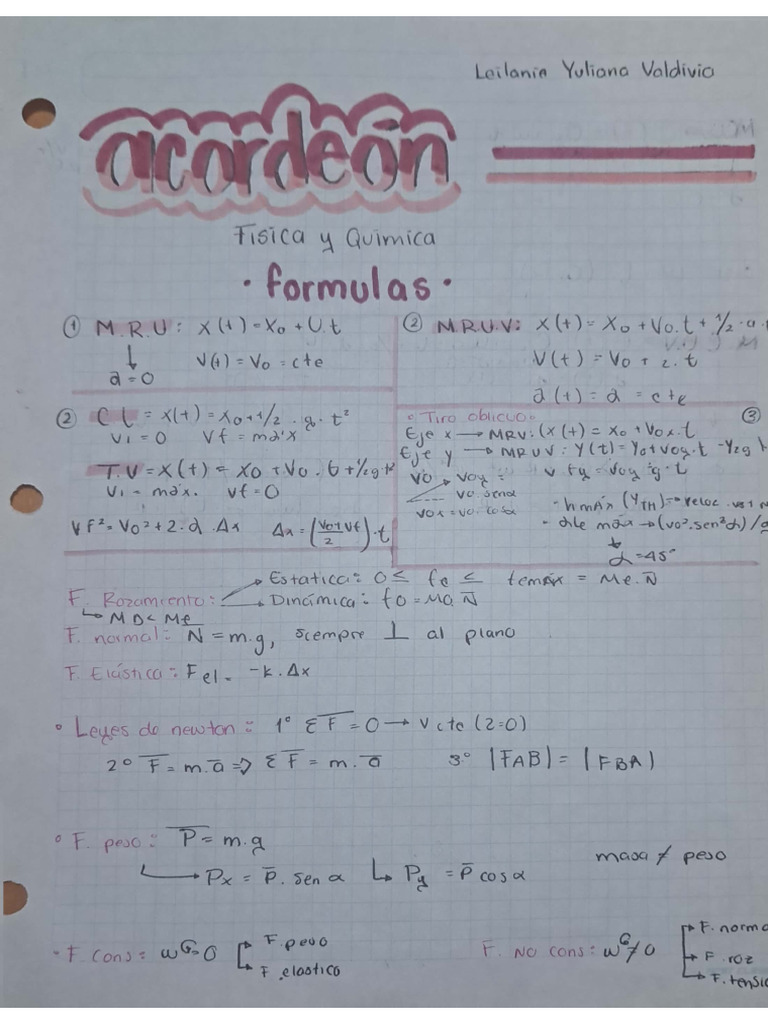 Leilanin Yuliana Valdivia
acordeón
Fisica y Quimica
• formulas •
① M.R.U: X(t)=X0+U.t
V(t)=V0=cte
a=0
② M.R.U.V: X(t)=X0+V0.t+1/2.a.
V(t)=V0+2.t
a(t)=a=cte
② CL=X(t)=X0+1/2.g.t²
Vi=0 Vf=max
T.V=X(t)=X0+V0.t+1/2g.t²
Vi=máx. Vf=0
Vf²=V0²+2.a.Δx Δx=(V0+Vf/2).t
◦ Tiro oblicuo ◦ ③
Eje x → MRV: (X(t)=x0+V0x.t
Eje y → MRUV: Y(t)=Y0+V0y.t-1/2g
V0 V0y=
V0.senα
V0x=V0.cosα
V fy=V0y.g.t
- hmáx (YTH)=
α=45°
F. Rozamiento: → Estatica: 0≤ fe ≤ femáx = Me.N̄
→ Dinámica: fD=MD.N̄
↳ MD<Me
F. normal: N̄=m.g, siempre ⊥ al plano
F. Elástica: Fel=-k.Δx
◦ Leyes de newton: 1° ΣF̄=0→V cte (2=0)
2° F̄=m.ā⇒ΣF̄=m.ā 3° |FAB|=|FBA|
◦ F. peso: P̄=m.g
masa ≠ peso
↳ Px=P̄.senα ↳ Py=P̄cosα
◦ F. cons: wG=0 F. peso
F. elastico
F. No cons: wG≠0 F. norma
F. roz
F. tensio